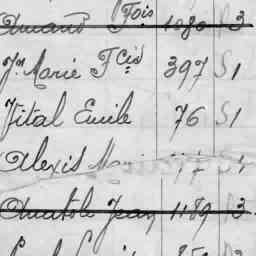 Amand Fois 1080 3
Jn Marie Fcis 397 S1
Vital Emile 76 S1
Alexis
Anatole Jean 1189 3